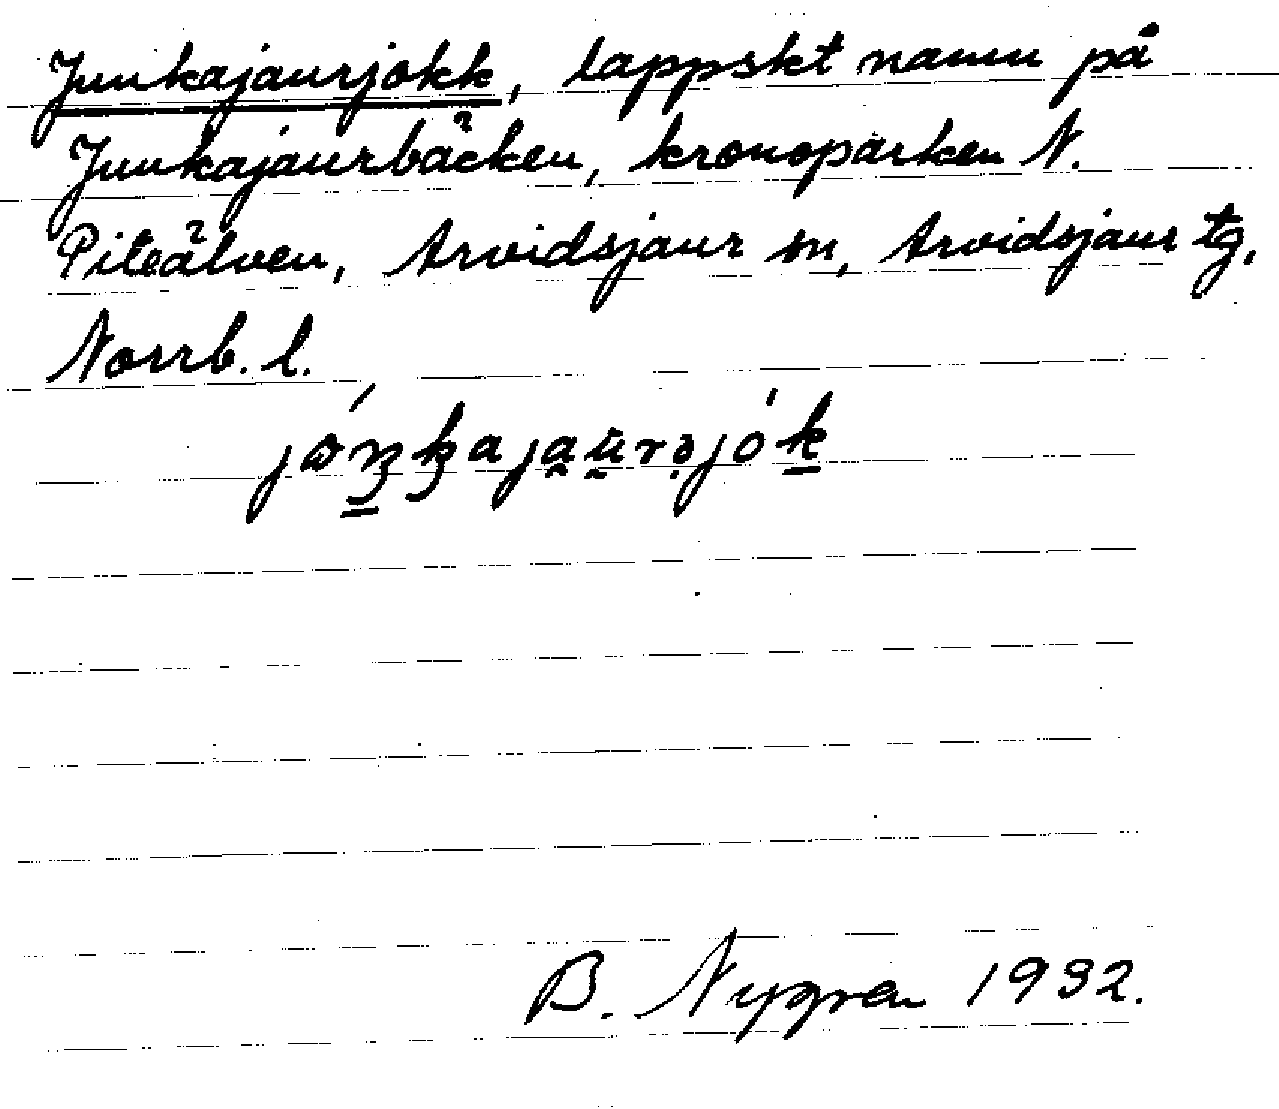 Junkajaurjokk, lappskt namn på
Junkajaurbäcken, kronoparken N.
Piteälven, Arvidsjaur sn, Arvidsjaur tg,
Norrb. l.
B. Nygren 1932.